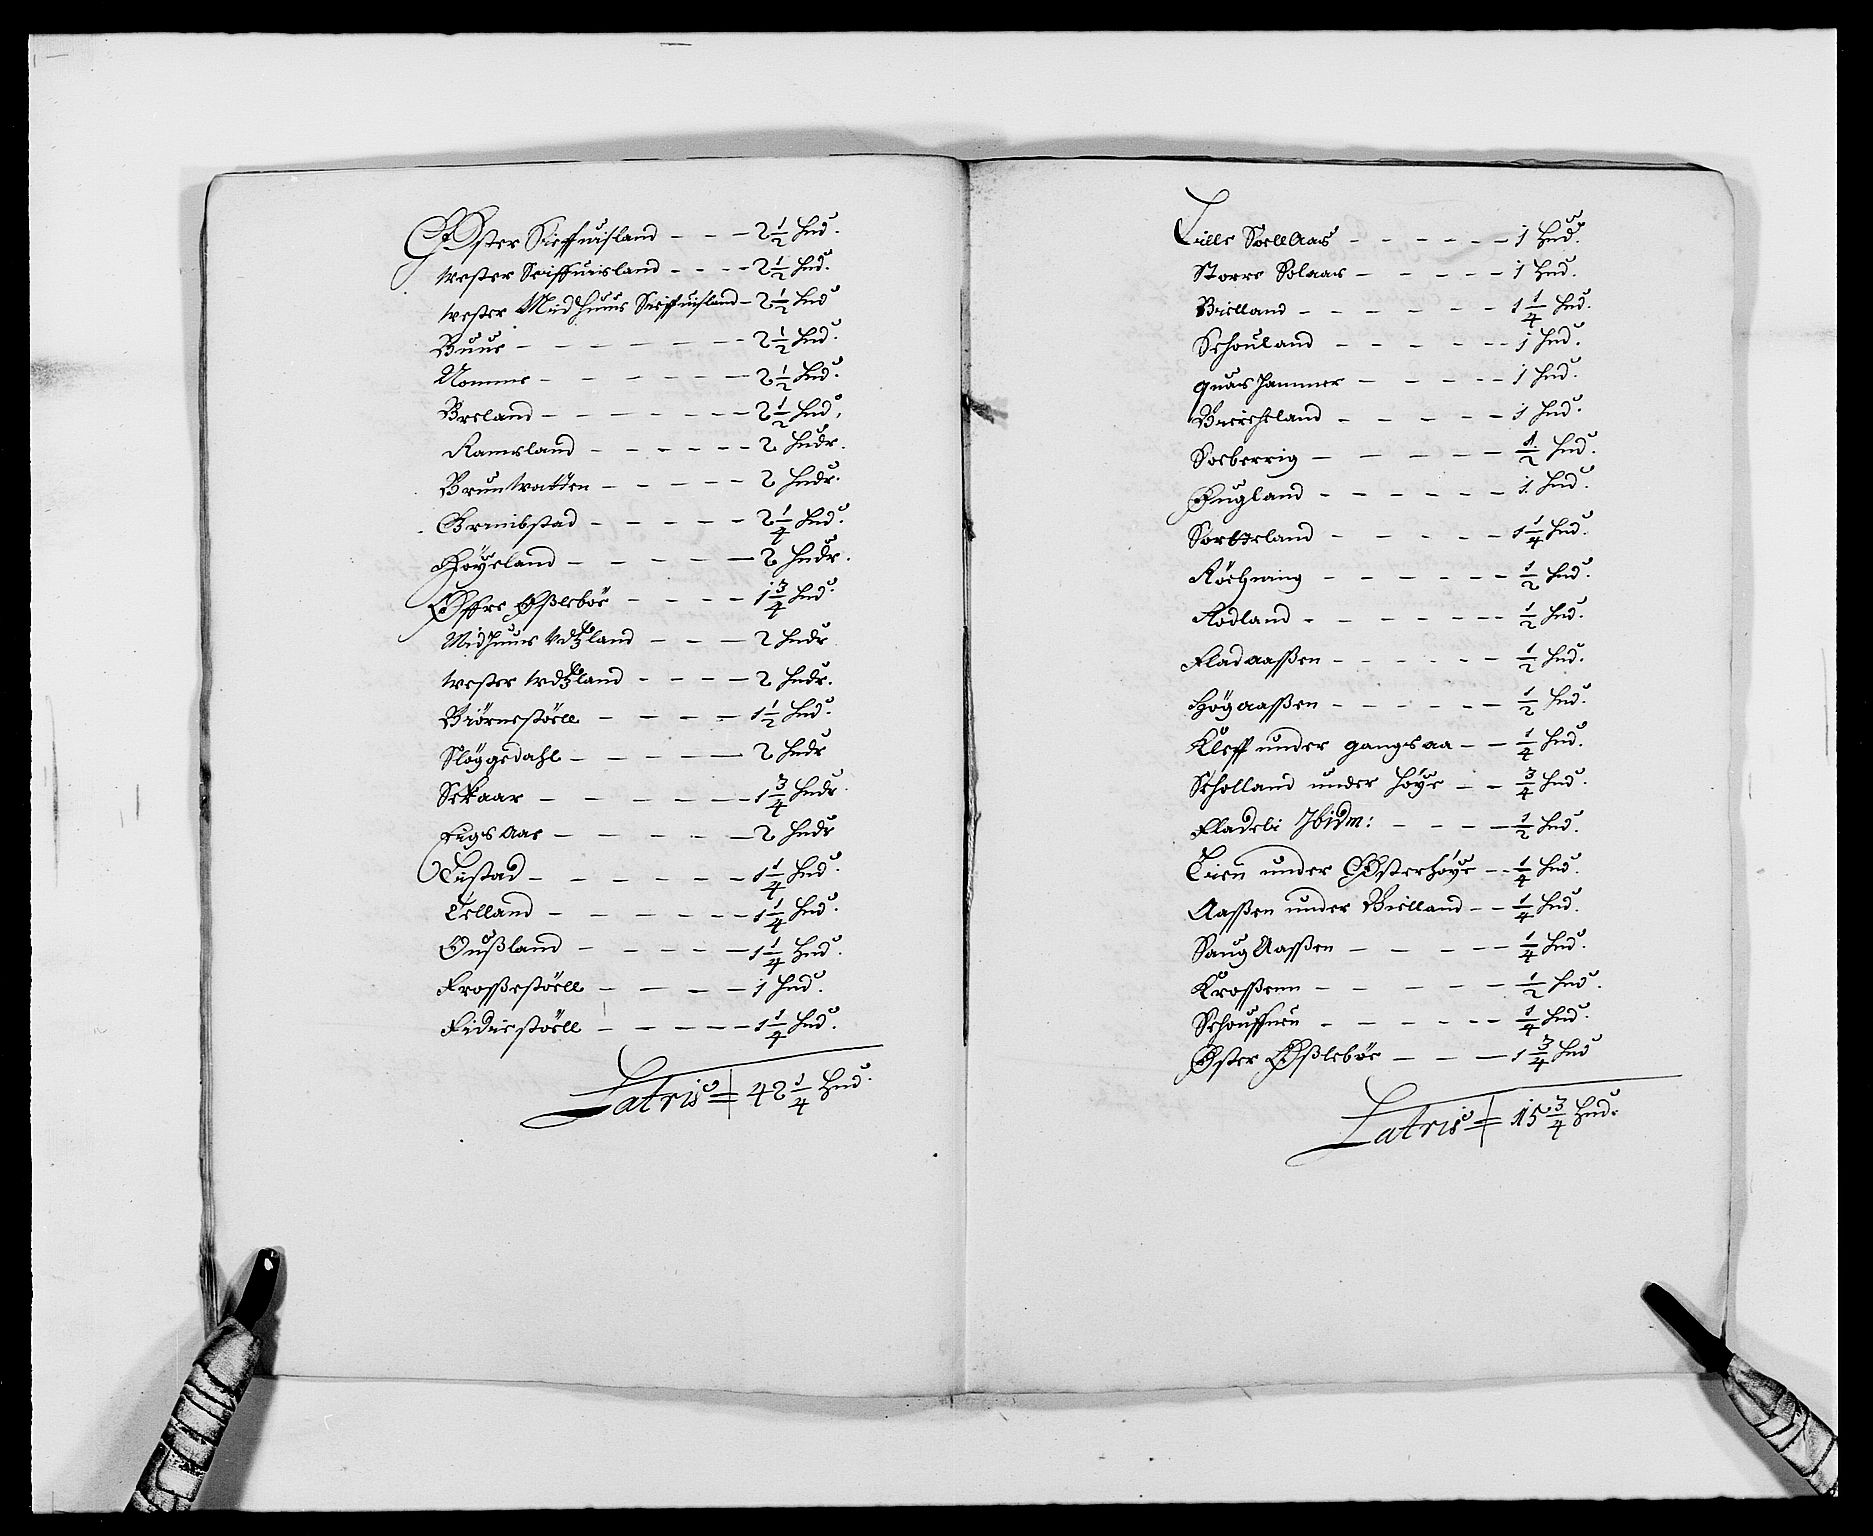 Øster Sieffuisland - - - 2 1/2 Hud.
wester Seiffuisland - - - - 2 1/2 Hud.
wester Midhuus Sieffuisland - 2 1/2 Hud
Buue - - - - - - - 2 1/2 Hud.
Nomme - - - - - - - 2 1/2 Hud.
Breland - - - - - - - 2 1/2 Hud.
Ramsland - - - - - - 2 Hudr.
Bruntvatten - - - - - 2 Hudr.
Grimbstad - - - - - 2 1/4 Hud.
Høyeland - - - - - - 2 Hudr.
Øffre Øßlebøe - - - - 1 3/4 Hud.
Midhuus land - - - 2 Hudr
wester land - - - - 2 Hudr.
Biørnestøell - - - - 1 1/2 Hud.
Sløggedahl - - - - - 2 Hudr
Sekaar - - - - - - 1 3/4 Hudr.
Eigs Aas - - - - - - 2 Hudr
Listad - - - - - - 1 1/4 Hud.
Telland - - - - - - 1 1/4 Hud.
Oußland - - - - - 1 1/4 Hud.
Froßestøell - - - - 1 Hud.
Fidiestøell - - - - - 1 1/4 Hud.
Latris 42 1/4 Hud.
Lille Soell Aas - - - - - - 1 Hud.
Storre Solaas - - - - - 1 Hud.
Bielland - - - - - - 1 1/4 Hud.
Schouland - - - - - - 1 Hud.
quas hammer - - - - - 1 Hud.
Biercheland - - - - - 1 Hud.
Soeberrig - - - - - - 1/2 Hud.
Fugland - - - - - - 1 Hud.
Sorteland - - - - - 1 1/4 Hud.
Røchning - - - - - - 1/2 Hud.
Rodland - - - - - - - 1/2 Hud.
Fladaaßen - - - - - - 1/2 Hud.
Høgaaßen - - - - - - 1/2 Hud.
Kleff under gangsaa - - 1/4 Hud.
Scholland under Høye - - 3/4 Hud.
Fladebi Ibidm: - - - - 1/2 Hud.
Lien under Østerhøye - - 1/4 Hud.
Aaßen under Bielland - - 1/4 Hud.
Saug Aaßen - - - - - 1/4 Hud.
Kroßenn - - - - - - 1/2 Hud.
Schouffuen - - - - - 1/4 Hud.
Øster Øßlebøe - - - 1 3/4 Hud
Latris 15 3/4 Hud.